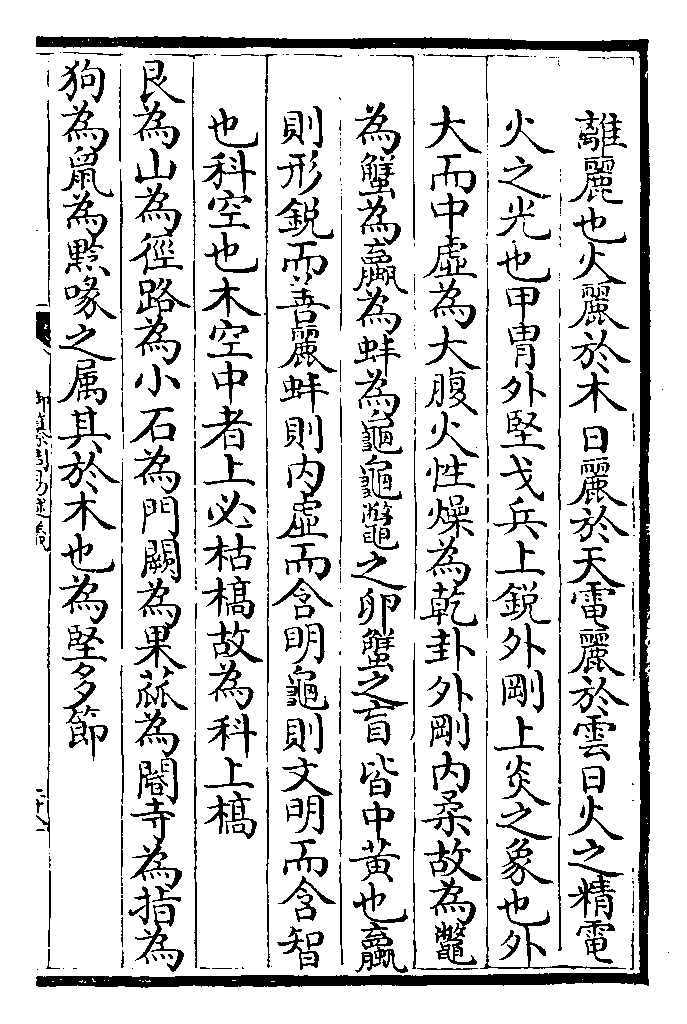 離麗也火麗於木日麗於天電麗於雲日火之精電
火之光也甲冑外堅戈兵上銳外剛上炎之象也外
大而中虛為大腹火性燥為乾卦外剛內柔故為鼈
為蟹為蠃為蚌為龜龜鼈之卵蟹之肓皆中黃也蠃
則形銳而善麗蚌則內虛而含明龜則文明而含智
也科空也木空中者上必枯槁故為科上槁
艮為山為徑路為小石為門闕為果蓏為閽寺為指為
狗為鼠為黔喙之属其於木也為堅多節
御纂周易述義